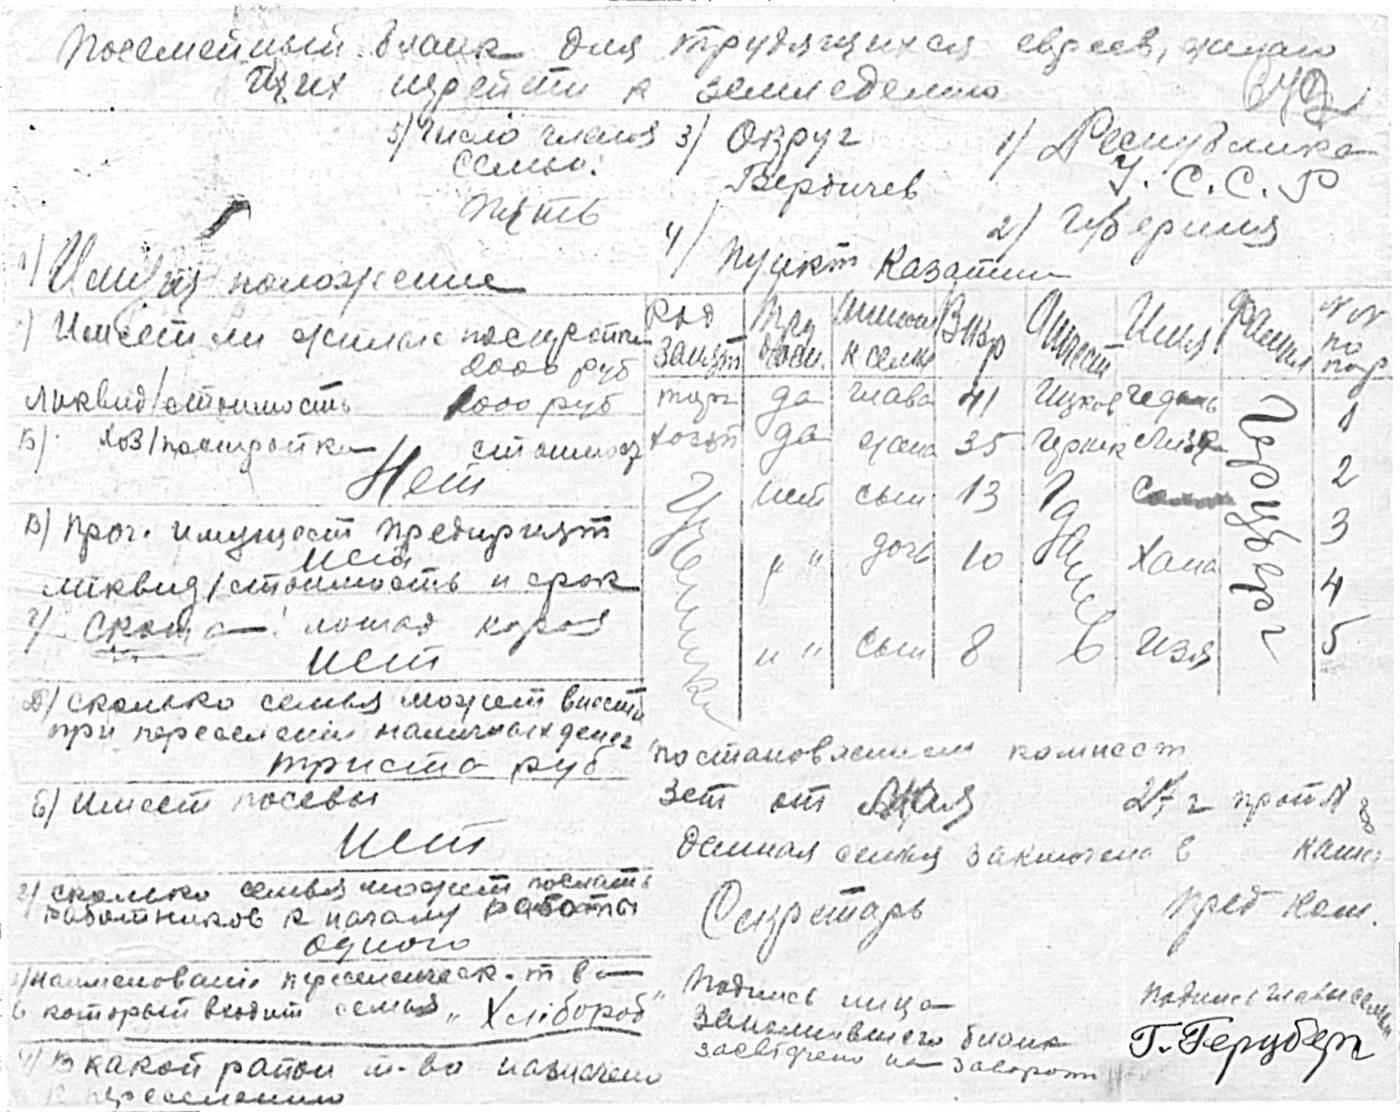 Посемейный бланк для трудящихся евреев, желаю
щих перейти к земледелию
1) Республика
У. С. С. Р
2) Губерния
3) Округ
Бердичев
4) Пункт Казатин
5) Число членов
семьи:
пять
Имущ положение
Имеет ли жилые постройки
2000 руб
ликвид/стоимость 1000 руб
Б) хоз/постройки стоимос
Нет
В) Проч. имущест предприят
нет
ликвид/стоимость и срок
г) скота: лошад коров
нет
Д) сколько семья может внести
при переселении наличных денег
триста руб
Е) Имеет посевы
нет
2) сколько семья может послать
работников к началу работы
одного
наименование переселенческ. т-ва
в который входит семья „Хлібороб"
4) В какой район т-во назначено
к переселению
Род занят Тру Отнош к семье Возр Отчест Имя Фамил № № по пор
торг да глава 41 Ицков Гедаль Герцберг 1
хозяй да жена 35 2
Ученика нет сын 13 Гдалев 3
" " дочь 10 Хана 4
" " сын 8 Изя 5
постановлением комиссии
Зет от мая 27 г прот №
данная семья заключена в
Секретарь Пред Ком.
Подпись лица
заполнившего бланк
засвідчено на звороті
Подпись главы семьи
Г. Герцберг